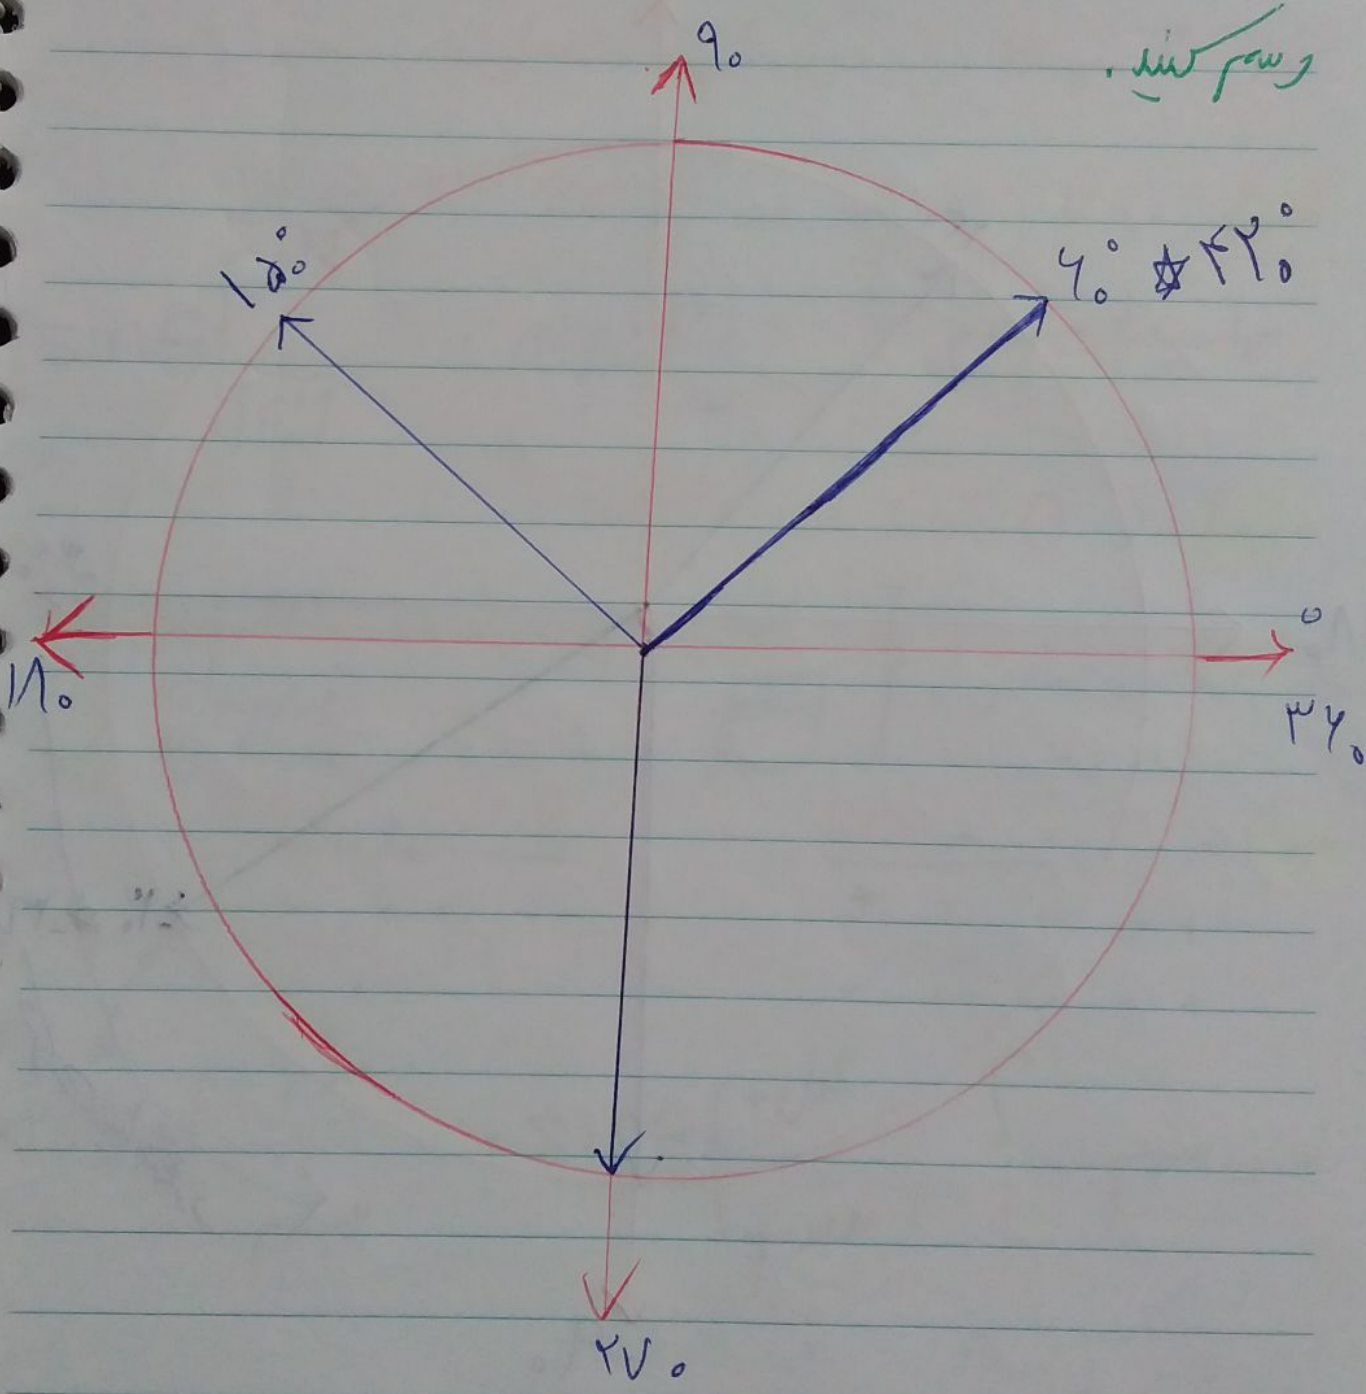 رسم کنید.
۹۰
۱۵۰°
۶۰° ☆ ۴۲۰°
۰
۱۸۰
۳۶۰
۲۷۰